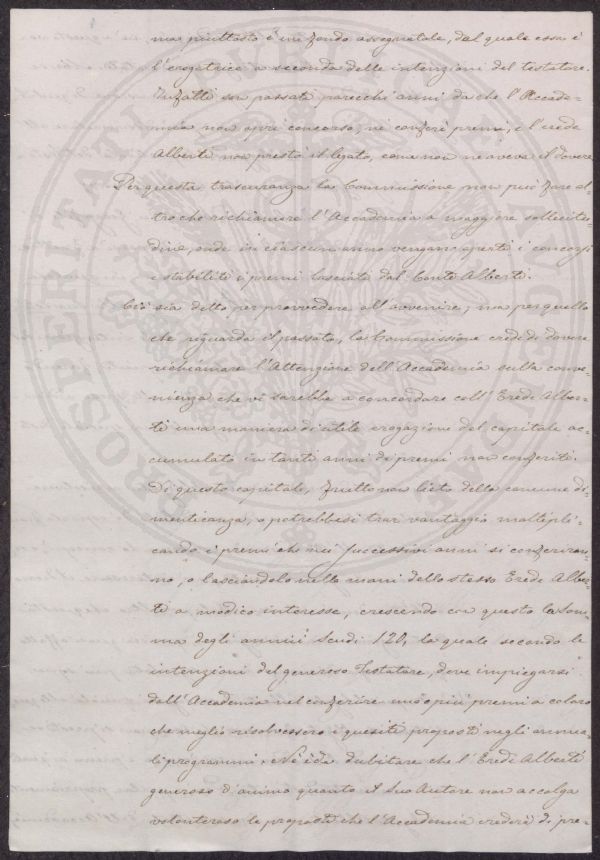 ma piuttosto è un fondo assegnatale, del quale essa è
l'erogatrice a seconda delle intenzioni del testatore.
Infatti son passati parecchi anni da che l'Accade-
mia non aprì concorso, nè conferì premi, e l'erede
Alberti non prestò il legato, come non ne aveva il dovere
Per questa trascuranza la Commissione non può fare al-
tro che richiamare l'Accademia a maggiore sollecitu-
dine, onde in ciascun anno vengano aperti i concorsi
e stabiliti i premi lasciati dal Conte Alberti.
Ciò sia detto per provvedere all'avvenire, ma per quello
che riguarda il passato, la Commissione crede di dovere
richiamare l'Attenzione dell'Accademia sulla conve-
nienza che vi sarebbe a concordare coll'Erede Alber-
ti una maniera di utile erogazione del capitale ac-
cumulato in tanti anni di premi non conferiti.
Di questo capitale, frutto non lieto della comune di-
menticanza, o potrebbesi trar vantaggio moltipli-
cando i premi che nei successivi anni si conferiran-
no, o lasciandolo nelle mani dello stesso Erede Alber-
ti a modico interesse, crescendo con questo la som-
ma degli annui Scudi 120, la quale secondo le
intenzioni del generoso Testatore, deve impiegarsi
dall'Accademia nel conferire uno o più premi a coloro
che meglio risolvessero i quesiti proposti negli annua-
li programmi. Nè è da dubitare che l'Erede Alberti
generoso d'animo quanto il suo Autore non accolga
volonteroso le proposte che l'Accademia crederà di pre-
PROSPERITATI
AUGENDAE